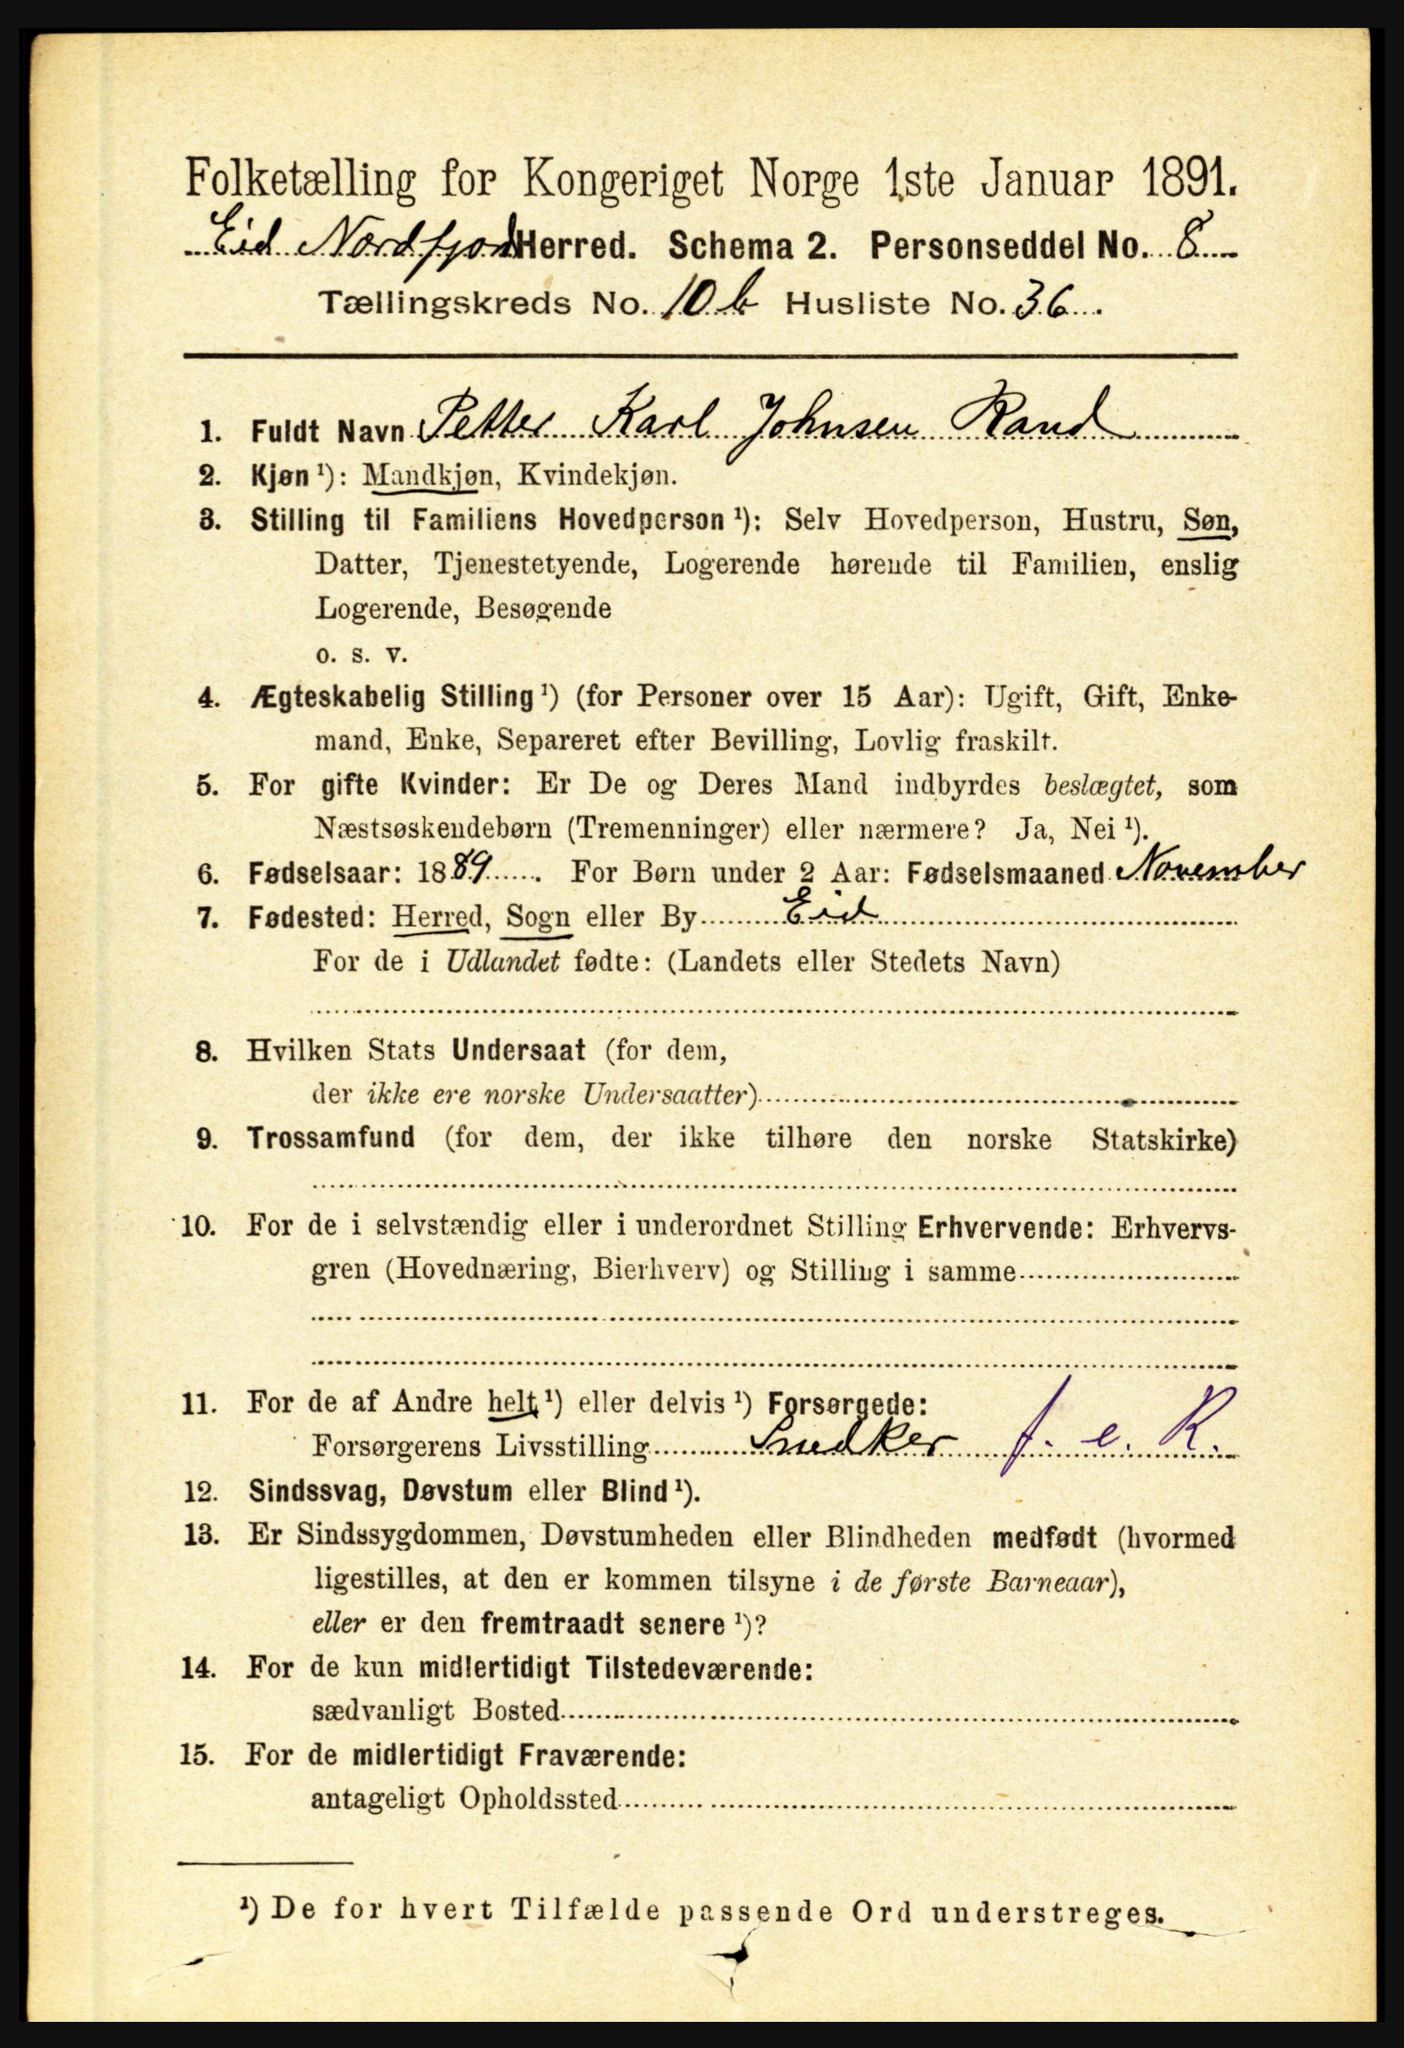 Folketælling for Kongeriget Norge 1ste Januar 1891.
Eid Nordfjord Herred. Schema 2. Personseddel No. 8
Tællingskreds No. 10 b Husliste No. 36
1. Fuldt Navn Petter Karl Johnsen Rand
2. Kjøn ¹): Mandkjøn, Kvindekjøn.
3. Stilling til Familiens Hovedperson ¹): Selv Hovedperson, Hustru, Søn,
Datter, Tjenestetyende, Logerende hørende til Familien, enslig
Logerende, Besøgende
o. s. v.
4. Ægteskabelig Stilling ¹) (for Personer over 15 Aar): Ugift, Gift, Enke-
mand, Enke, Separeret efter Bevilling, Lovlig fraskilt.
5. For gifte Kvinder: Er De og Deres Mand indbyrdes beslægtet, som
Næstsøskendebørn (Tremenninger) eller nærmere? Ja, Nei ¹).
6. Fødselsaar: 1889. For Børn under 2 Aar: Fødselsmaaned November
7. Fødested: Herred, Sogn eller By Eid
For de i Udlandet fødte: (Landets eller Stedets Navn)
8. Hvilken Stats Undersaat (for dem,
der ikke ere norske Undersaatter)
9. Trossamfund (for dem, der ikke tilhøre den norske Statskirke)
10. For de i selvstændig eller i underordnet Stilling Erhvervende: Erhvervs-
gren (Hovednæring, Bierhverv) og Stilling i samme
11. For de af Andre helt ¹) eller delvis ¹) Forsørgede:
Forsørgerens Livsstilling Snedker f. e. R.
12. Sindssvag, Døvstum eller Blind ¹).
13. Er Sindssygdommen, Døvstumheden eller Blindheden medfødt (hvormed
ligestilles, at den er kommen tilsyne i de første Barneaar),
eller er den fremtraadt senere ¹)?
14. For de kun midlertidigt Tilstedeværende:
sædvanligt Bosted
15. For de midlertidigt Fraværende:
antageligt Opholdssted
¹) De for hvert Tilfælde passende Ord understreges.